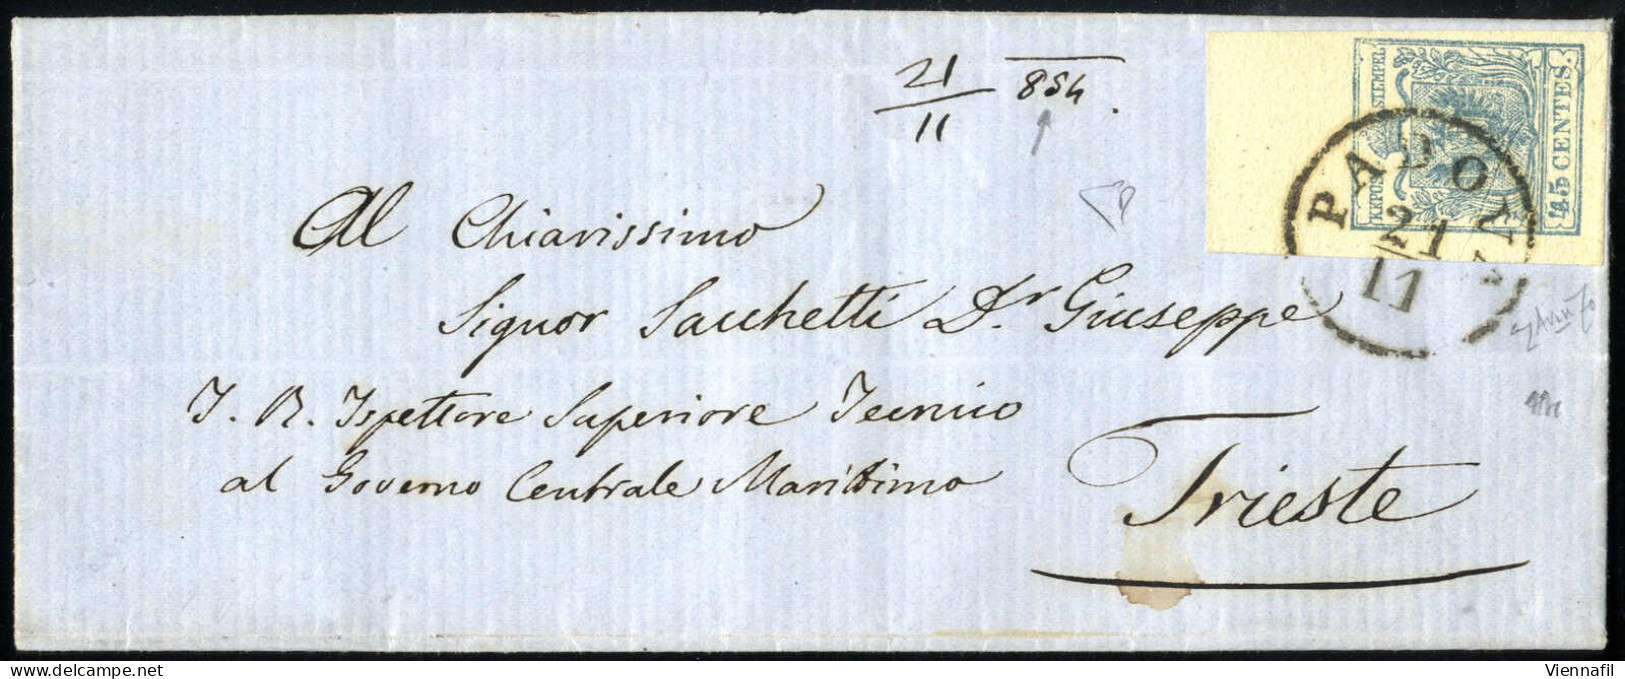 21/11 854.
Al Chiarissimo
Signor Sacchetti Dr. Giuseppe
I. R. Ispettore Superiore Tecnico
al Governo Centrale Marittimo
Trieste
KKPOST STEMPEL
45 CENTES.
PADOVA
21
11
Viennafil